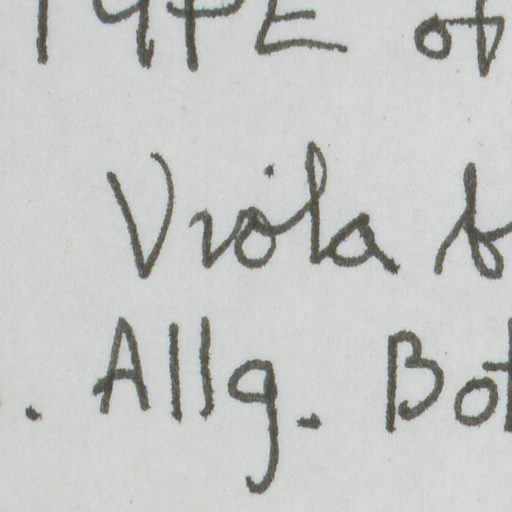 TYPE of
Viola
. Allg. Bot